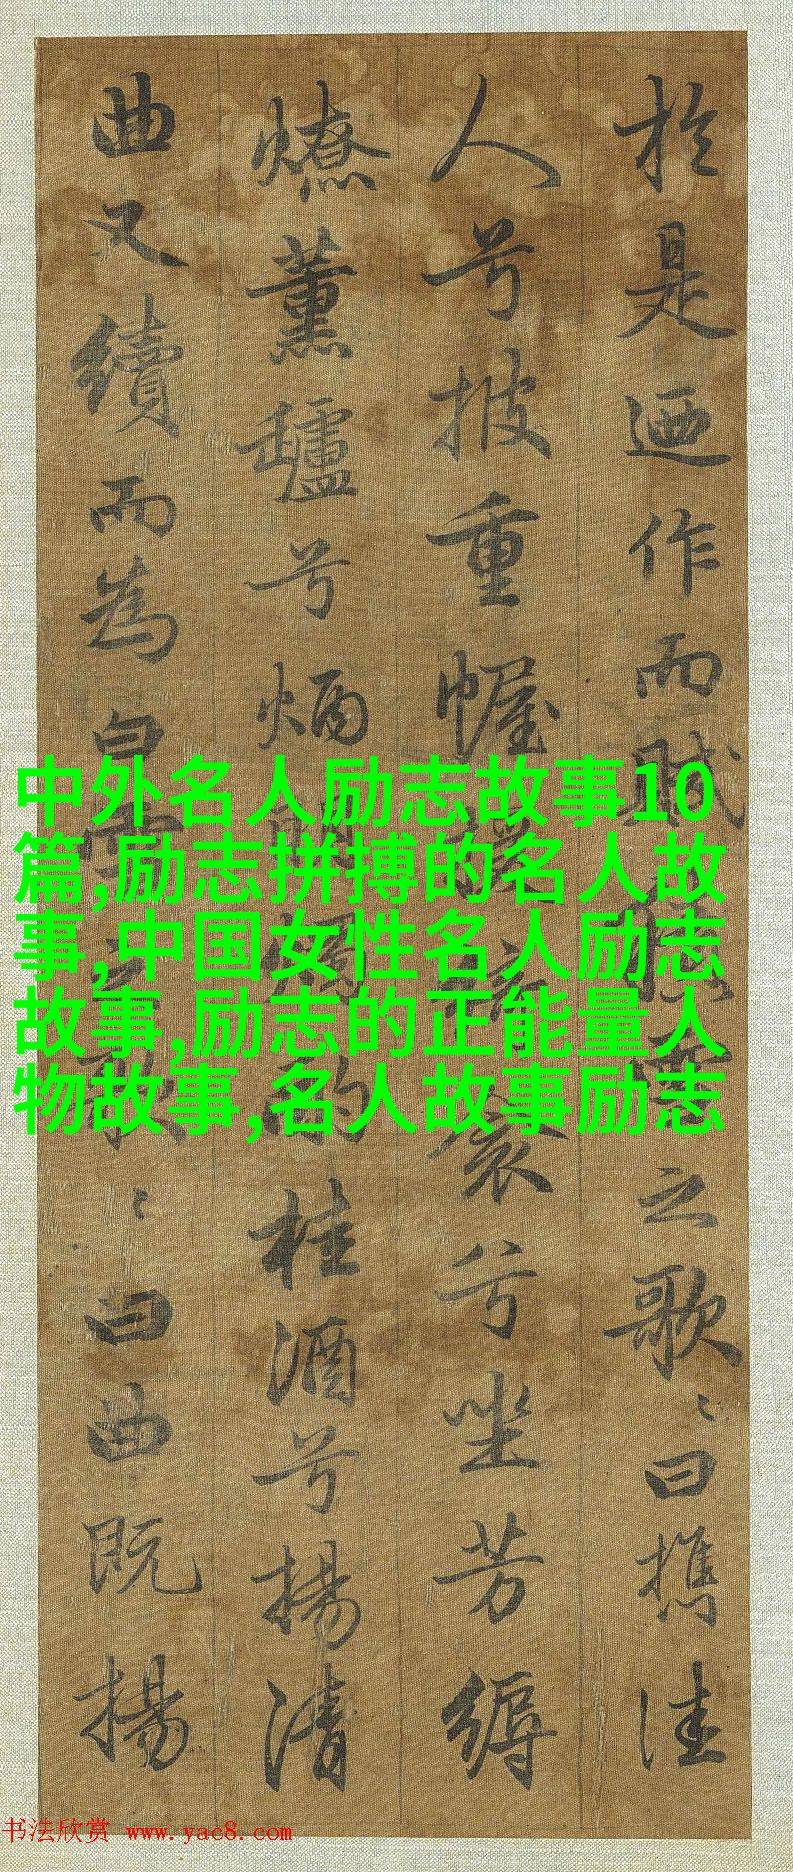 於是迺作而賦之歌〻曰攜佳
人兮披重幄衾兮坐芳縟
燎薰鑪兮炳燭桂酒兮揚清
曲又續而為白〻曰曲既揚
中外名人励志故事10
篇,励志拼搏的名人故
事,中国女性名人励志
故事,励志的正能量人
物故事,名人故事励志
书法欣赏 www.yac8.com